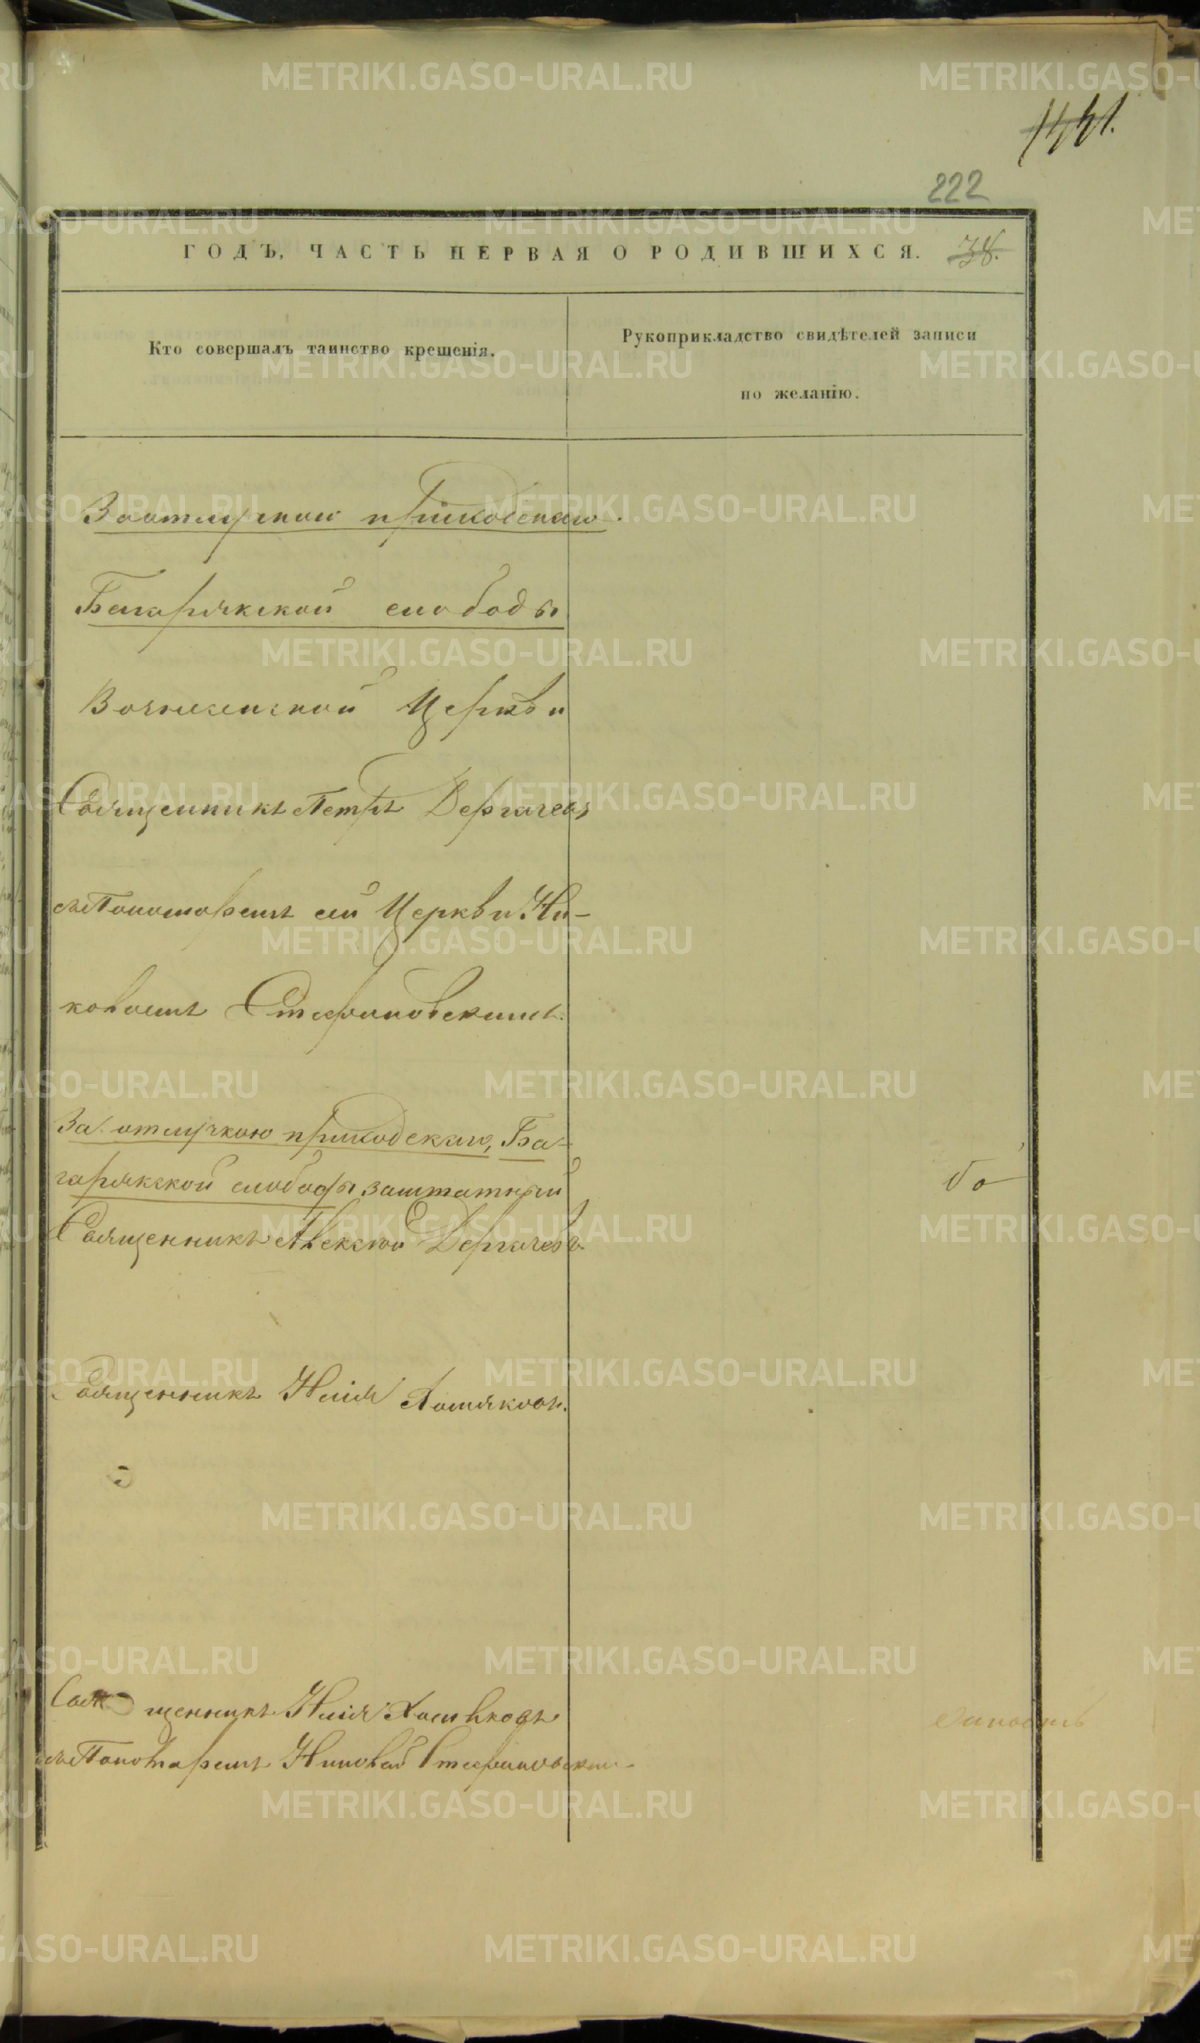 1441.
222
ГОДЪ, ЧАСТЬ ПЕРВАЯ О РОДИВШИХСЯ. 38.
Кто совершалъ таинство крещенія.
Рукоприкладство свидѣтелей записи
по желанію.
За отлучкою приходскаго
Багарякской слободы
Вознесенской Церкви
Священникъ Петръ Дергачевъ
съ Пономаремъ сей Церкви Ни-
Стефановскимъ.
За отлучкою приходскаго, Ба-
гарякской слободы заштатный
Священникъ Алексѣй Дергачевъ
Священникъ Илія Хомяковъ.
Свя щенникъ Илія Хомяковъ
съ Пономаремъ Стефановским
METRIKI.GASO-URAL.RU